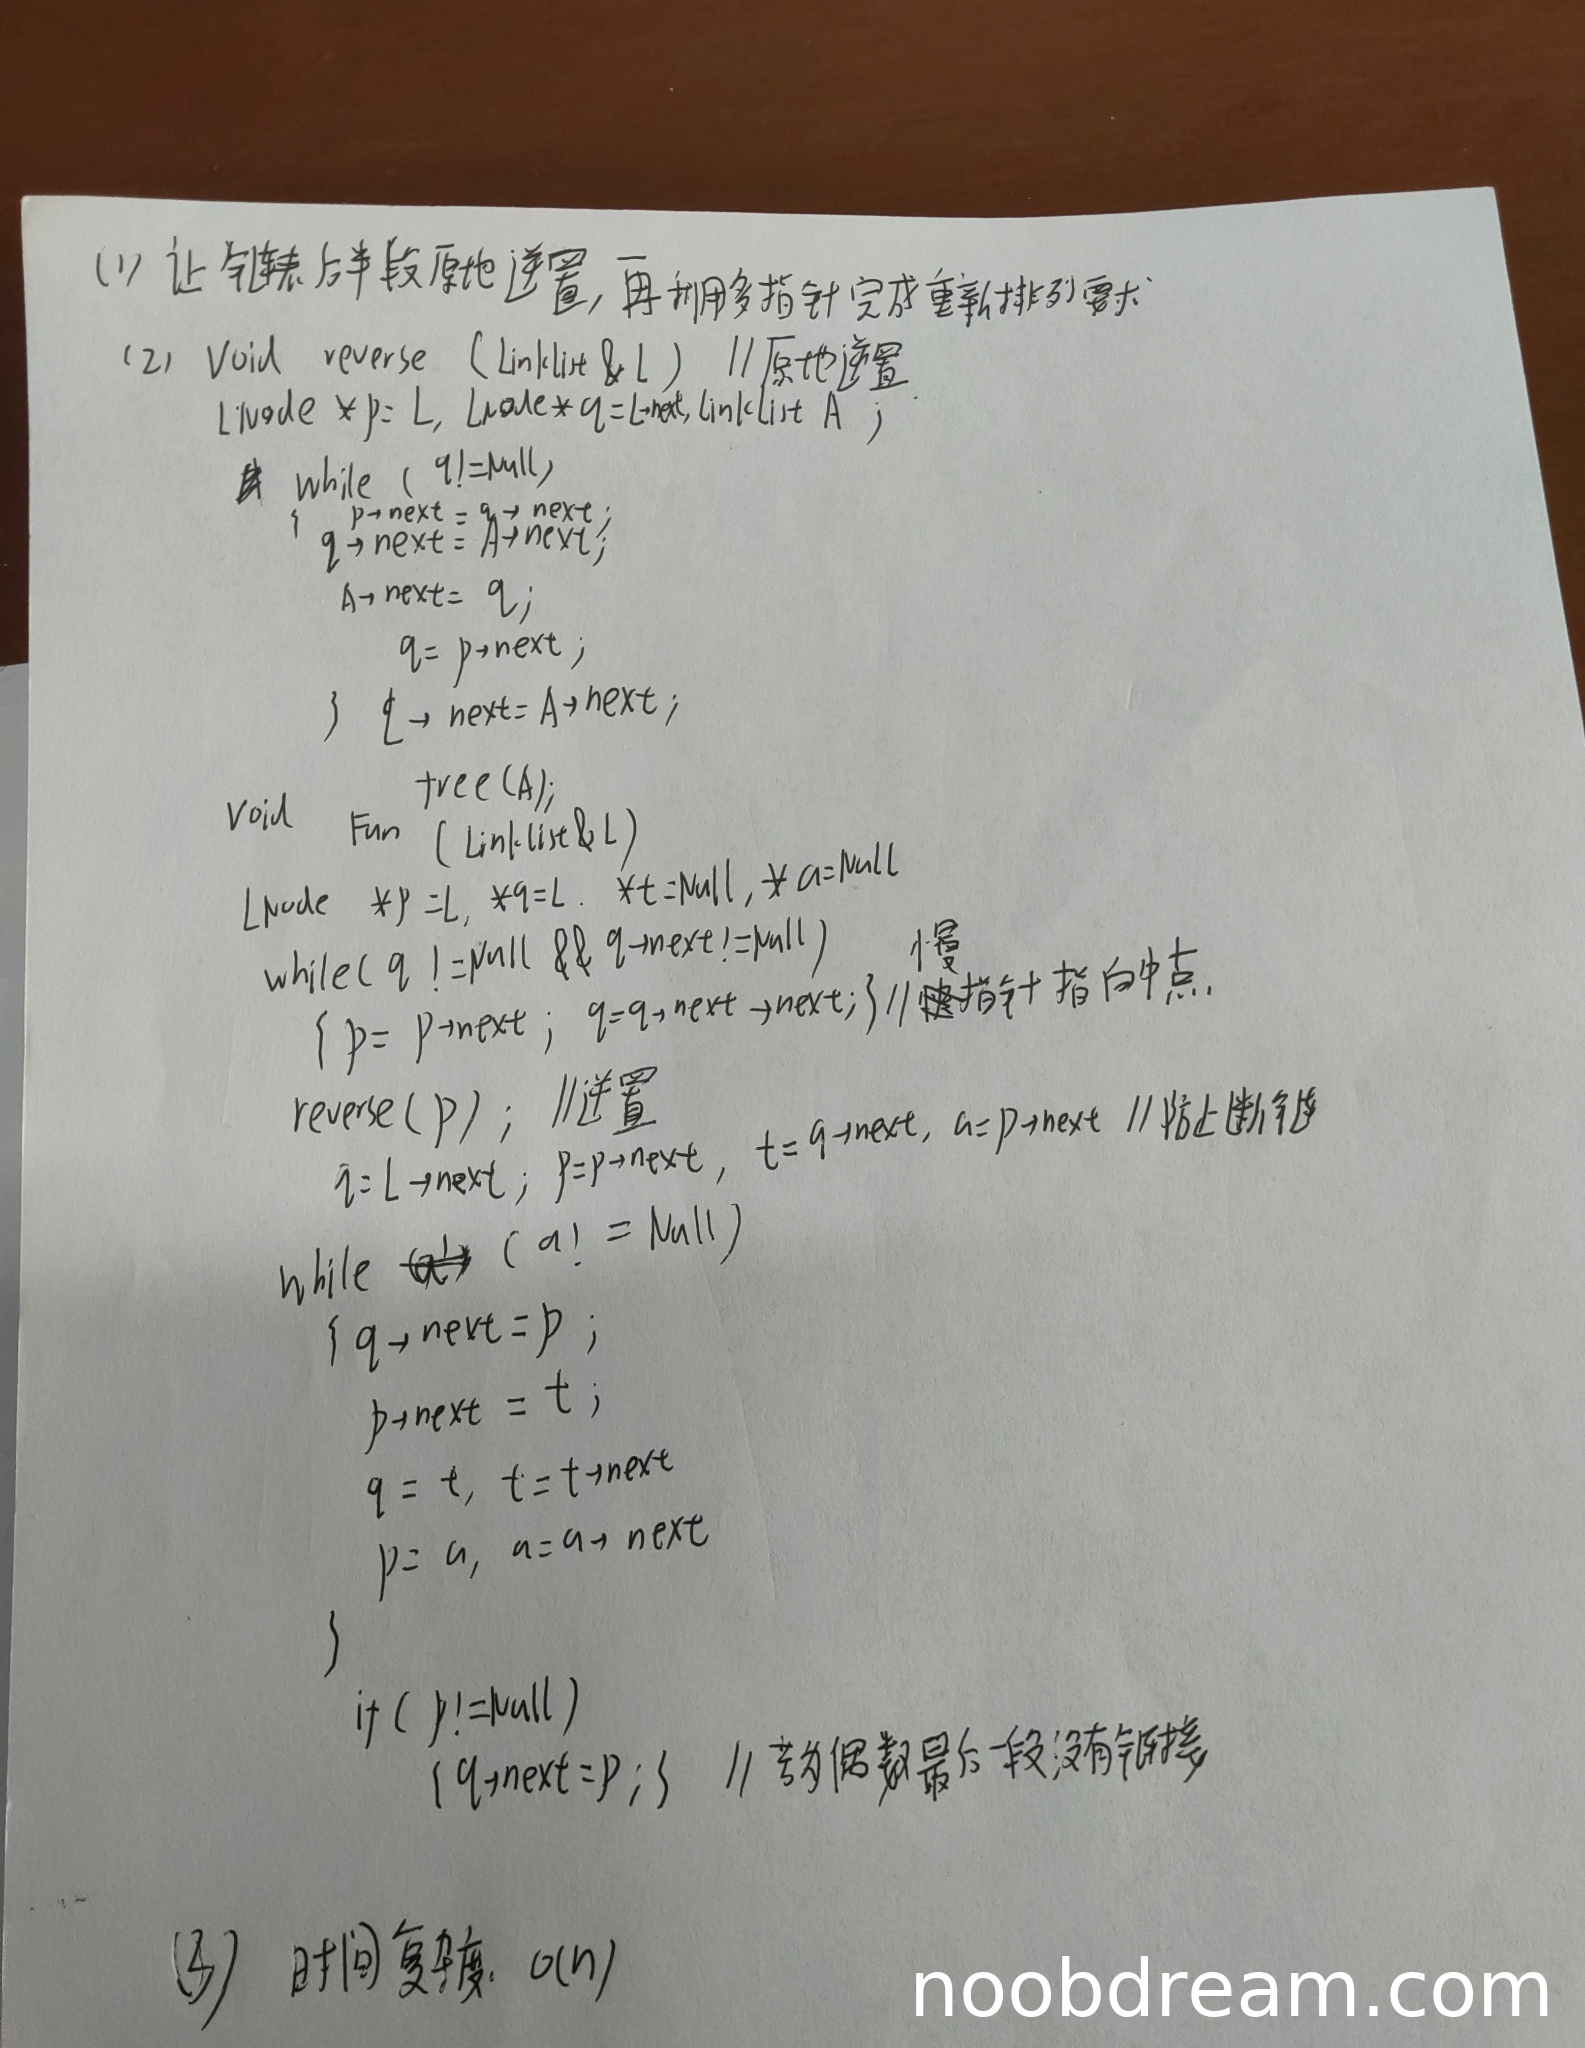 (1) 让链表后半段原地逆置,再利用多指针完成重新排列要求
(2) Void reverse (Linklist & L) //原地逆置
LNode *p= L, LNode* q=L→next, LinkList A ;
while ( q!=Null)
{ p→next = q→ next;
q→next= A→next;
A→ next= q;
q= p→next;
} L→ next= A→next;
free(A);
Void Fun (Linklist&L)
LNode *p =L, *q=L. *t=Null, *a=Null
while( q !=Null && q→next!=Null)
{ p= p→next; q=q→next→next;} //慢指针指向中点.
reverse(p); //逆置
q=L→next; p=p→next, t=q→next, a=p→next //防止断链
while (a! = Null)
{ q→next=p ;
p→next = t ;
q = t, t=t→next
p= a, a=a→ next
}
if( p!=Null)
{ q→next=p;} //若为偶数最后一段没有链接
(3) 时间复杂度. O(n)
noobdream.com